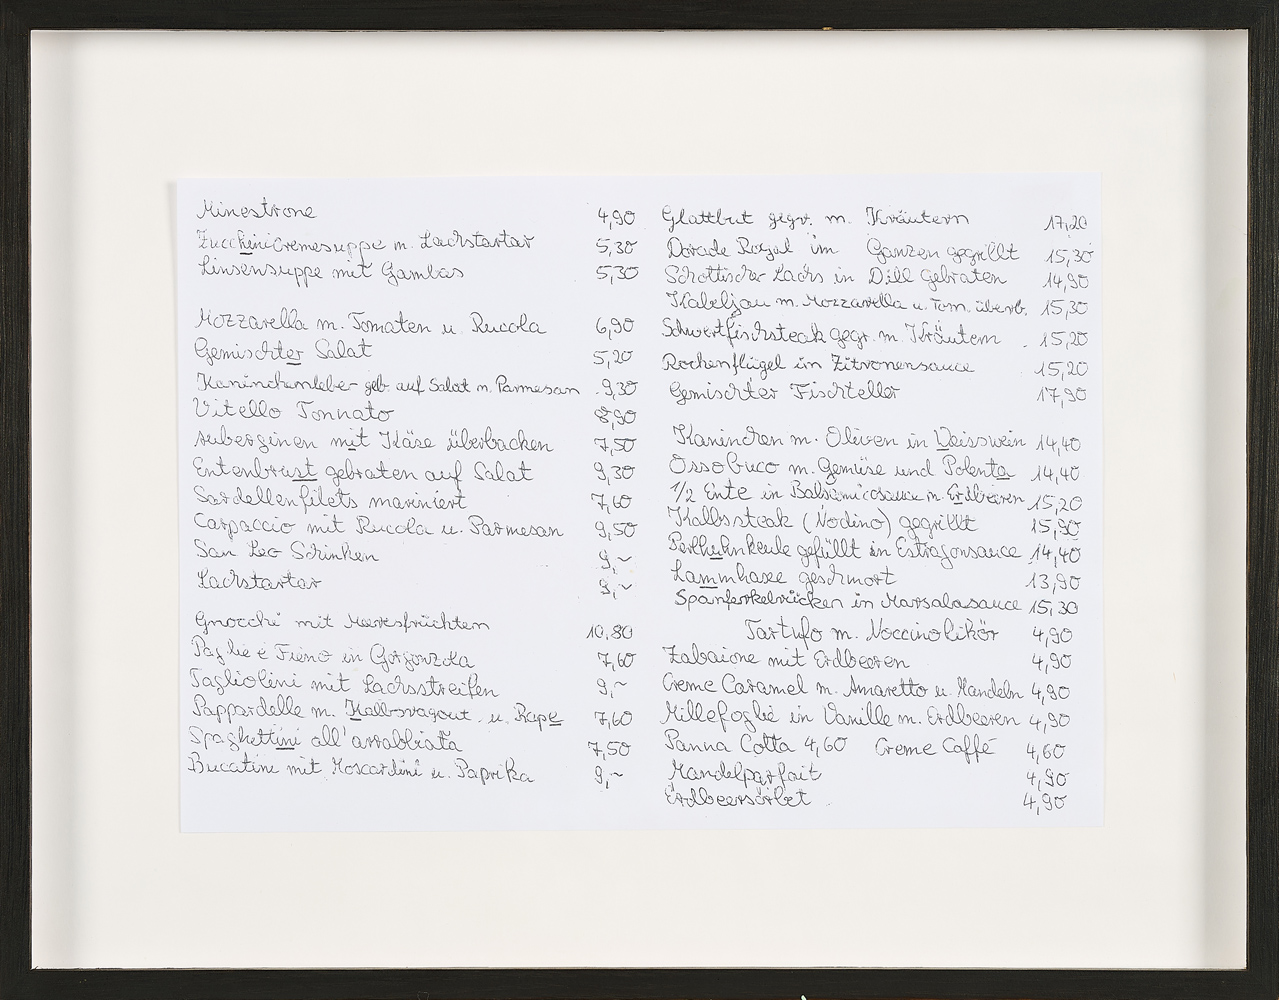 Minestrone 4,90
Zucchinicremesuppe m. Lachstartar 5,30
Linsensuppe mit Gambas 5,30
Mozzarella m. Tomaten u. Rucola 6,90
Gemischter Salat 5,20
Kaninchenleber geb. auf Salat m. Parmesan 9,30
Vitello Tonnato 8,90
Auberginen mit Käse überbacken 7,50
Entenbrust gebraten auf Salat 9,30
Sardellenfilets mariniert 7,60
Carpaccio mit Rucola u. Parmesan 9,50
San Leo Schinken 9,~
Lachstartar 9,~
Gnocchi mit Meeresfrüchten 10,80
Paglie é Fieno in Gorgonzola 7,60
Tagliolini mit Lachsstreifen 9,~
Pappardelle m. Kalbsragout u. 7,60
Spaghettini all'arrabbiata 7,50
Bucatini mit Moscardini u. Paprika 9,~
Glattbut gegr. m. Kräutern 17,20
Dorade Royal im Ganzen gegrillt 15,30
Schottischer Lachs in Dill gebraten 14,90
Kabeljau m. Mozzarella u. Tom. überb. 15,30
Schwertfischsteak gegr. m. Kräutern 15,20
Rochenflügel in Zitronensauce 15,20
Gemischter Fischteller 17,90
Kaninchen m. Oliven in Weisswein 14,40
Ossobuco m. Gemüse und Polenta 14,40
1/2 Ente in Balsamicosauce m. Erdbeeren 15,20
Kalbssteak (Nodino) gegrillt 15,90
Perlhuhnkeule gefüllt in Estragonsauce 14,40
Lammhaxe geschmort 13,90
Spanferkelrücken in Marsalasauce 15,30
Tartufo m. Noccinolikör 4,90
Zabaione mit Erdbeeren 4,90
Creme Caramel m. Amaretto u. Mandeln 4,90
Millefoglie in Vanille m. Erdbeeren 4,90
Panna Cotta 4,60 Creme Caffé 4,60
Mandelparfait 4,90
Erdbeersorbet 4,90